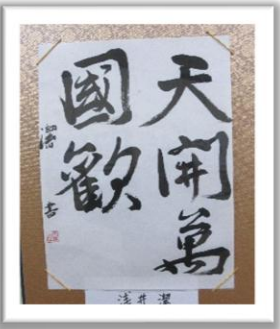 天開萬
國歡
潔書
浅井潔